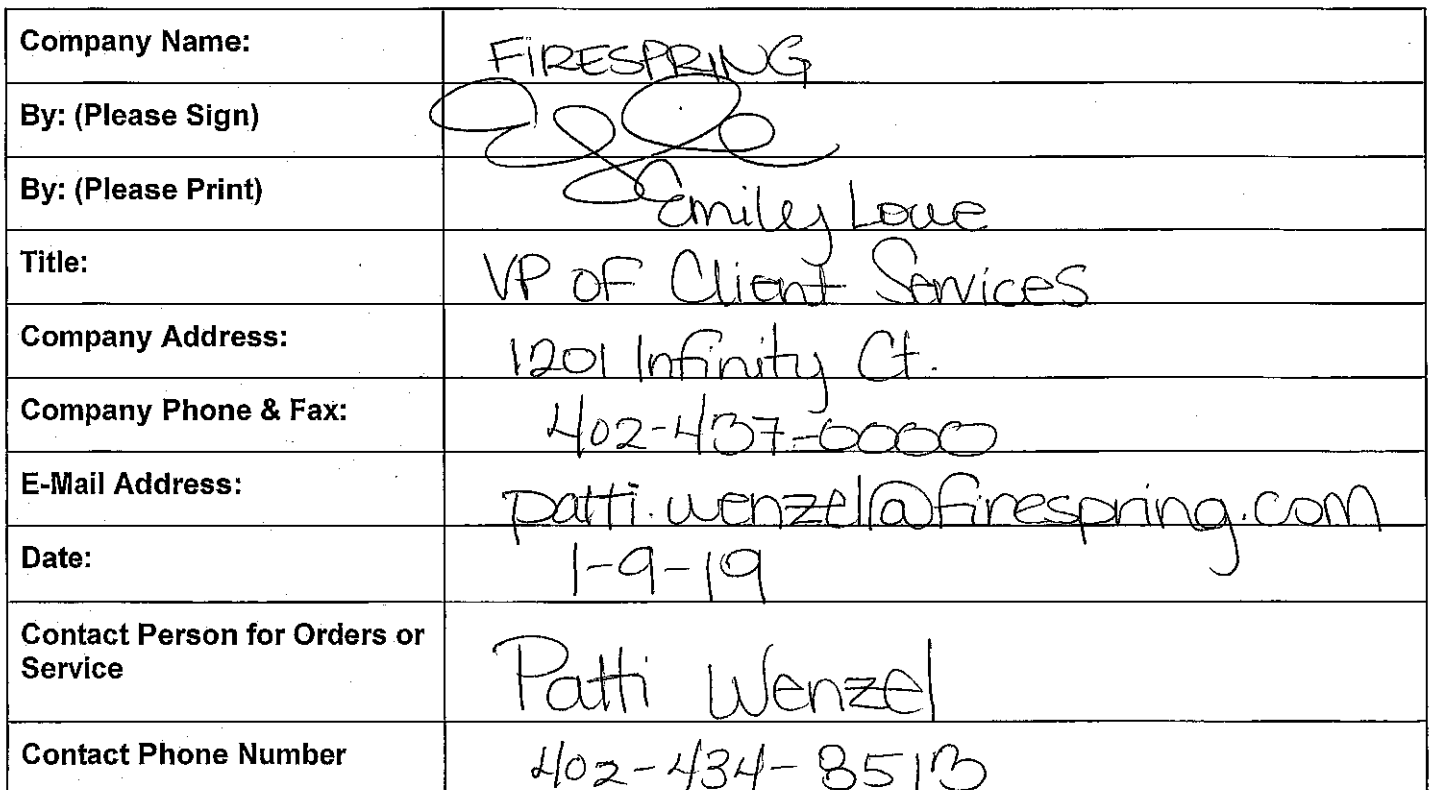 Company Name: FIRESPRING
By: (Please Sign)
By: (Please Print) Emily Lowe
Title: VP OF Client Services
Company Address: 1201 Infinity Ct.
Company Phone & Fax: 402-437-0000
E-Mail Address: patti.wenzel@firespring.com
Date: 1-9-19
Contact Person for Orders or
Service Patti Wenzel
Contact Phone Number 402-434-8513